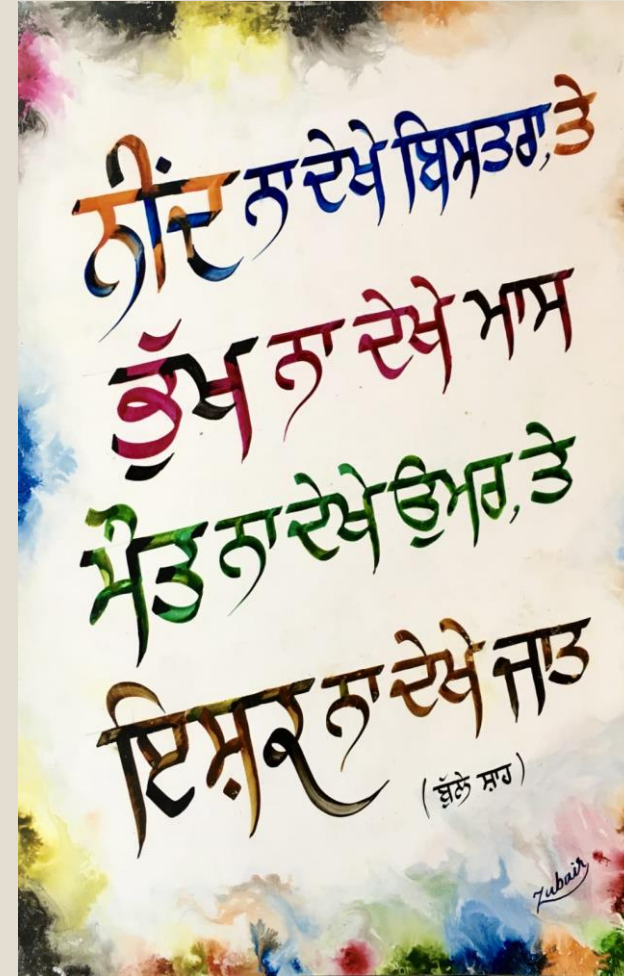 ਨੀਂਦ ਨਾ ਦੇਖੇ ਬਿਸਤਰਾ, ਤੇ
ਭੁੱਖ ਨਾ ਦੇਖੇ ਮਾਸ
ਮੌਤ ਨਾ ਦੇਖੇ ਉਮਰ, ਤੇ
ਇਸ਼ਕ ਨਾ ਦੇਖੇ ਜਾਤ
(ਬੁੱਲੇ ਸ਼ਾਹ)
Zubair